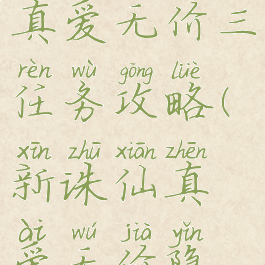 真爱无价三
rèn wù gōng lüè
任务攻略(
xīn zhū xiān zhēn
新诛仙真
ài wú jià yǐn
爱无价隐